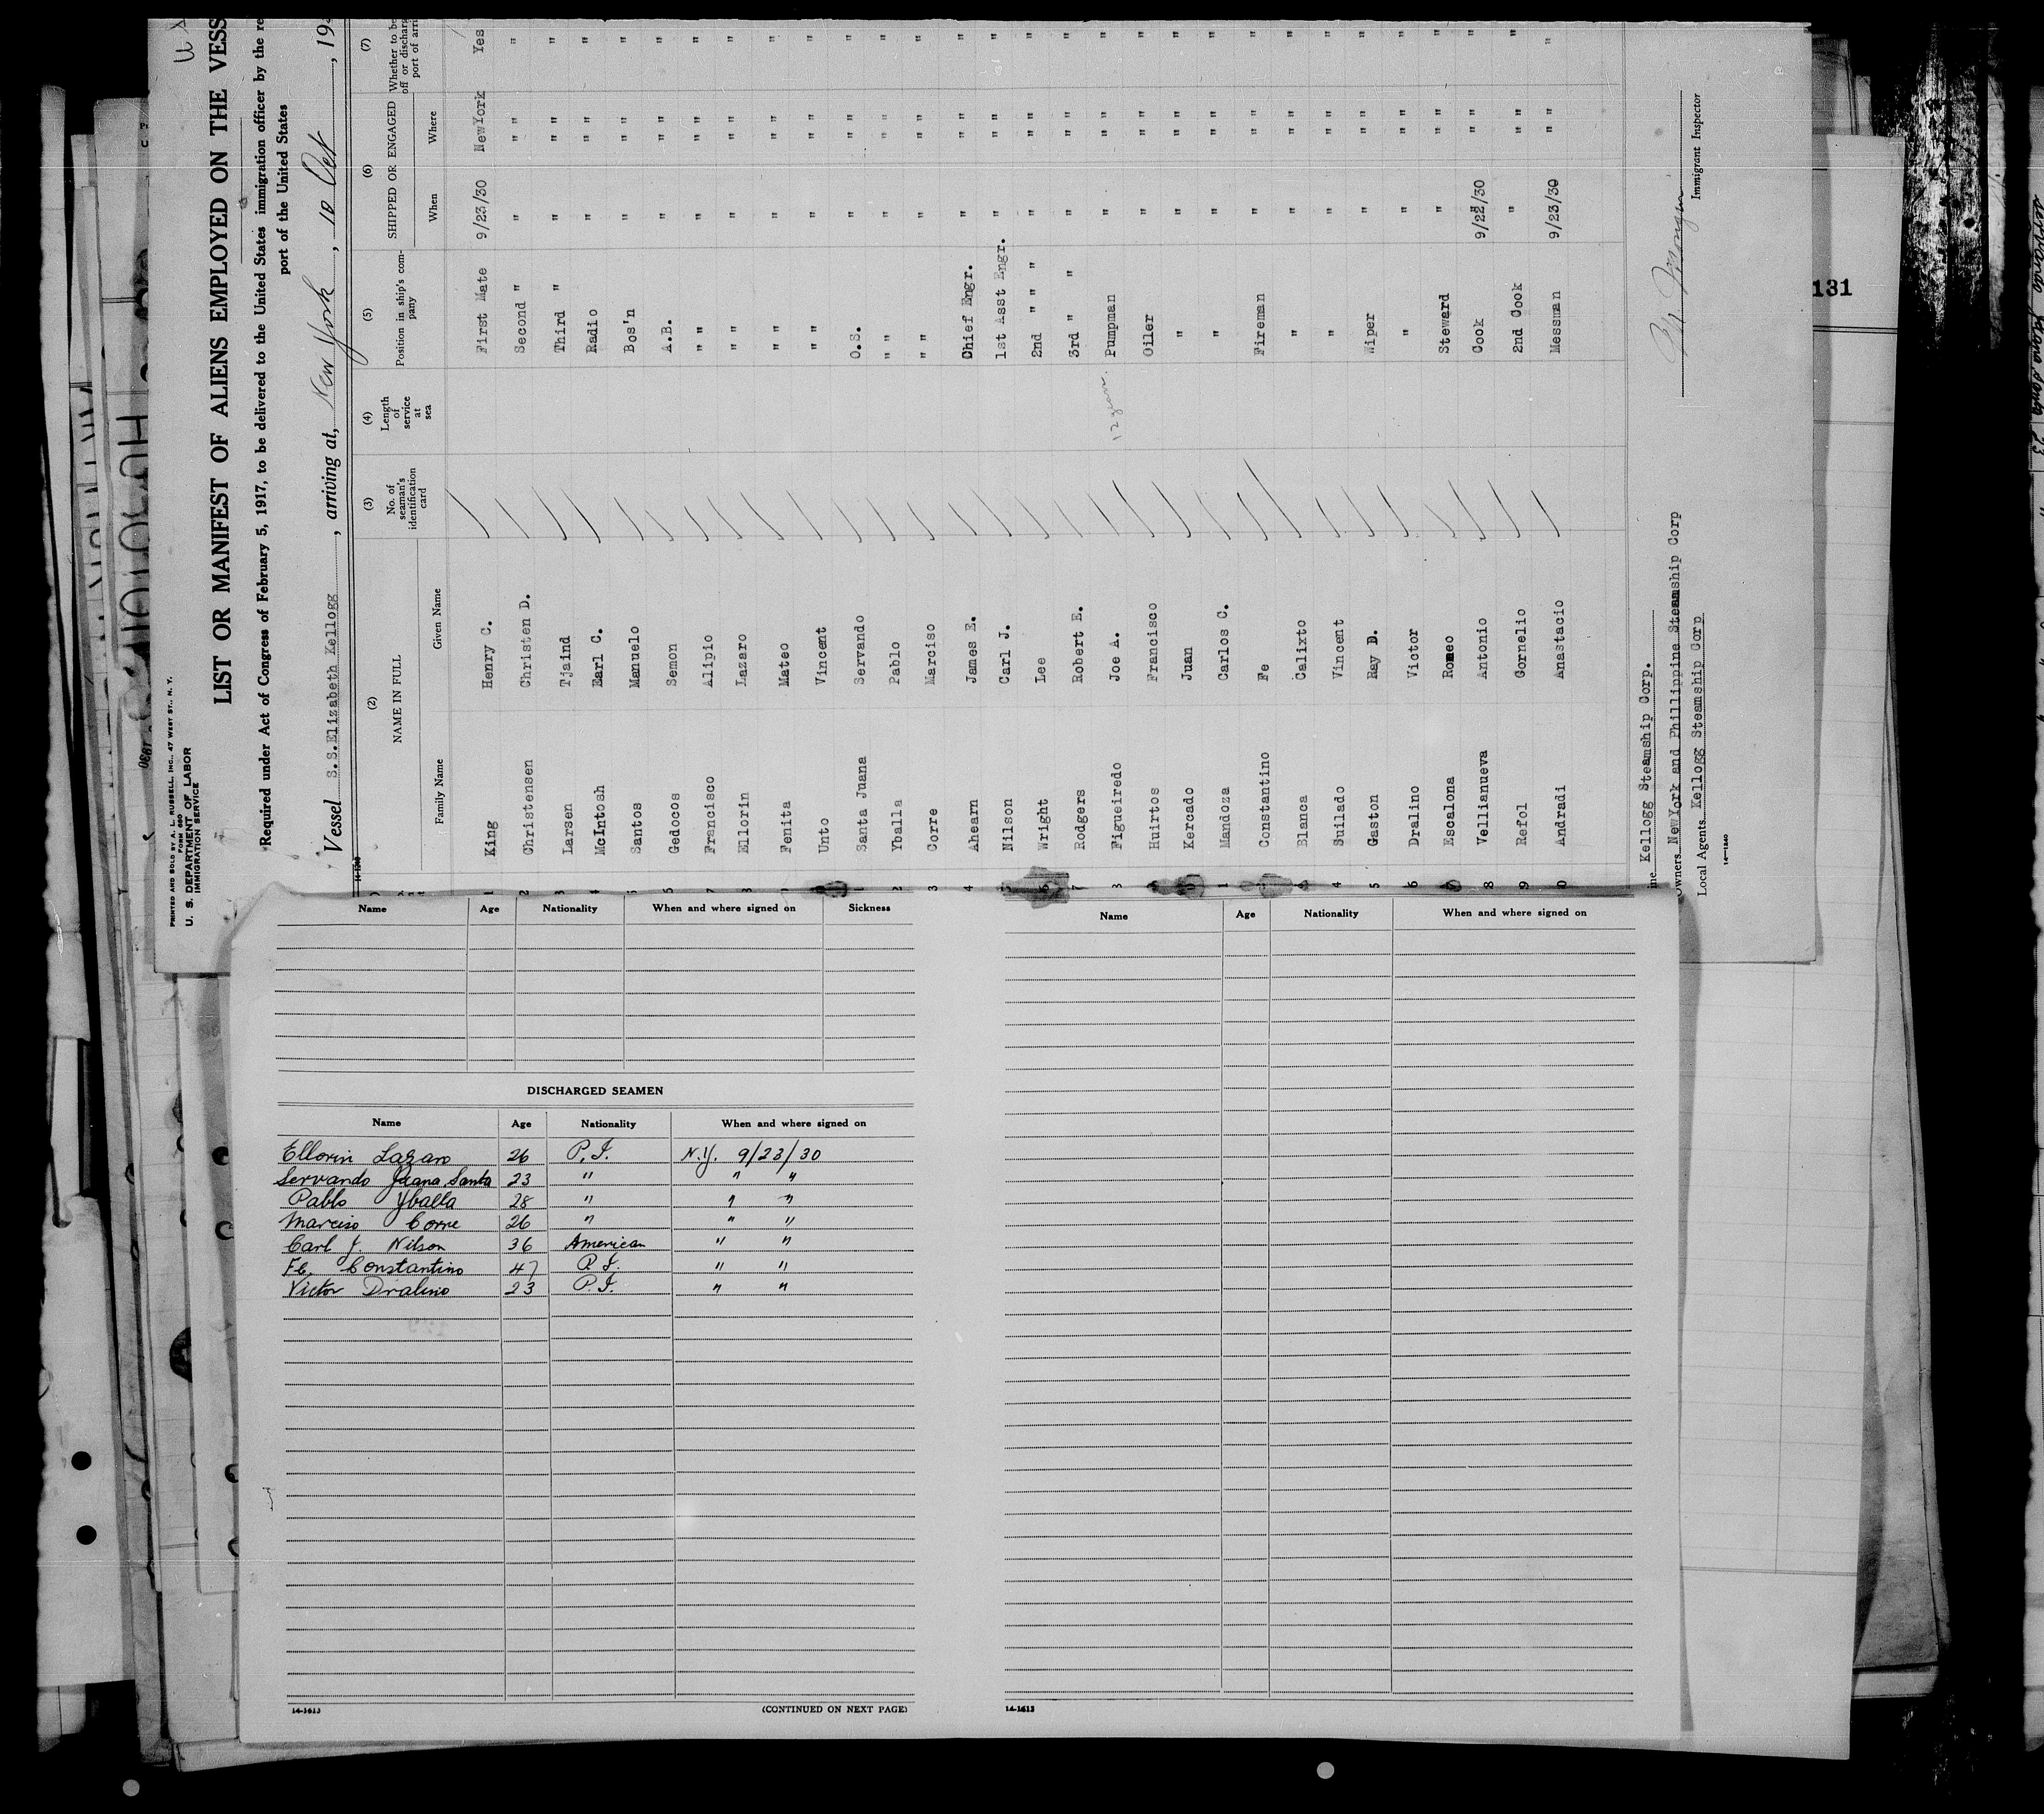 PRINTED AND SOLD BY A. L. RUSSELL, INC., 47 WEST ST., N. Y.
FORM 680
U. S. DEPARTMENT OF LABOR
IMMIGRATION SERVICE
LIST OR MANIFEST OF ALIENS EMPLOYED ON THE VESS
Required under Act of Congress of February 5, 1917, to be delivered to the United States immigration officer by the re
port of the United States
Vessel S.S.Elizabeth Kellogg, arriving at, New York, 10 Oct, 19
(2) (3) (4) (5) (6) (7)
NAME IN FULL No. of seaman's identification card Length of service at sea Position in ship's company SHIPPED OR ENGAGED Whether to be off or discharg port of arri
Family Name Given Name When Where
1 King Henry C. First Mate 9/23/30 NewYork Yes
2 Christensen Christen D. Second " " " " "
3 Larsen Tjaind Third " " " " "
4 McIntosh Earl C. Radio " " " "
5 Santos Manuelo Bos'n " " " "
6 Gedocos Semon A.B. " " " "
7 Francisco Alipio " " " " " "
8 Ellorin Lazaro " " " " " "
Fenita Mateo " " " " " "
Unto Vincent " " " " " "
1 Santa Juana Servando O.S. " " " "
2 Yballa Pablo " " " " " "
3 Corre Marciso " " " " " "
4 Ahearn James E. Chief Engr. " " " "
5 Nilson Carl J. 1st Asst Engr. " " " "
6 Wright Lee C 2nd " " " " " " "
7 Rodgers Robert E. 3rd " " " " " "
8 Figueiredo Joe A. 12 years. Pumpman " " " "
Huirtos Francisco Oiler " " " "
Kercado Juan " " " " "
1 Mandoza Carlos C. " " " " "
Constantino Fe Fireman " " " "
Blanca Calixto " " " " "
4 Suilado Vincent " " " " "
5 Gaston Ray D. Wiper " " " "
6 Dralino Victor " " " " "
Escalona Romeo Steward " " " "
8 Vellianueva Antonio Cook 9/22/30 " " "
9 Refol Gornelio 2nd Cook " " " "
0 Andradi Anastacio Messman 9/23/30 " " "
ine Kellogg Steamship Corp.
Owners NewYork and Phillippine Steamship Corp
Local Agents Kellogg Steamship Corp
Immigrant Inspector
14-1240
131
Name Age Nationality When and where signed on Sickness
DISCHARGED SEAMEN
Name Age Nationality When and where signed on
Ellorin Lazaro 26 P.I. N.Y. 9/23/30
Servando Juana Santa 23 " " "
Pablo Yballa 28 " " "
Marciso Corre 26 " " "
Carl J. Nilson 36 American " "
Fe. Constantino 47 P.I. " "
Victor Dralino 23 P.I. " "
14-1613 (CONTINUED ON NEXT PAGE)
Name Age Nationality When and where signed on
14-1613